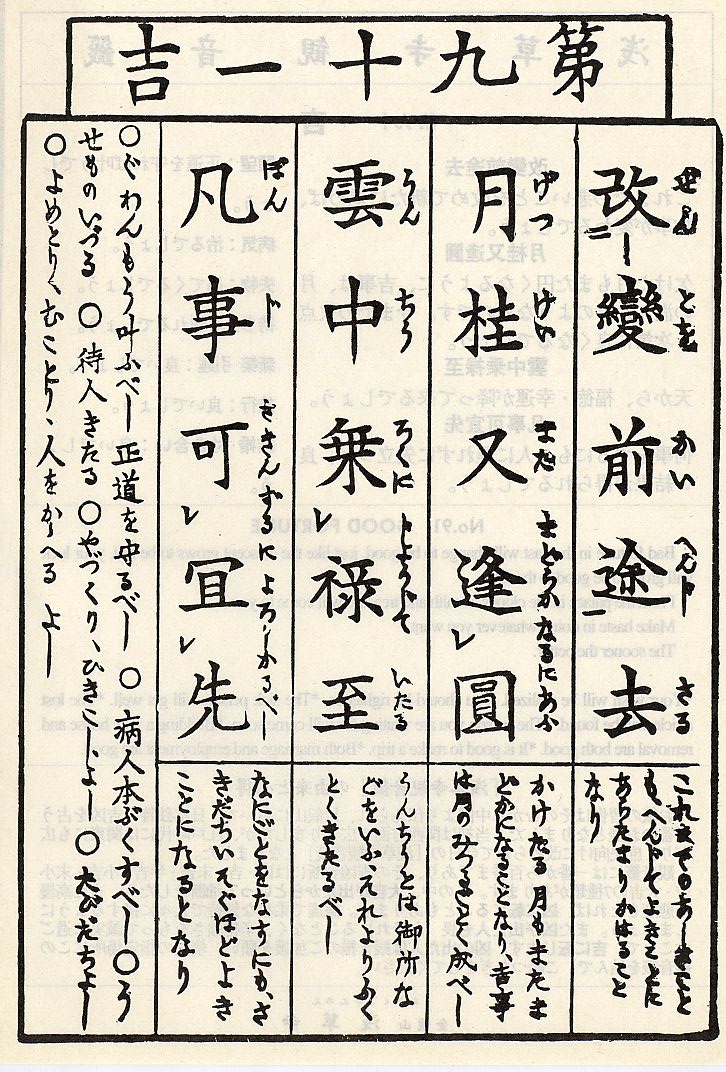 第九十一吉
改變前途去
ぜんとを かいへんじ さる
これまでもあしきこと
もへんじてよきことに
あらたまりかはること
なり
月桂又逢圓
げつ けい また まどかなるにあふ
かけたる月もまたま
どかになることなり、吉事
は月のみつるごと成べし
雲中乗禄至
うん ちう ろくに じようじて いたる
うんちうとは御所な
どをいふ、それよりふく
とくきたるべし
凡事可宜先
ぼん じ さきんずるによろしかるべし
なにごとをなすにも、さ
きだちいそぐほどよき
ことになるとなり
○ぐわんもう叶ふべし正道を守るべし ○病人本ぶくすべし ○う
せものいづる ○待人きたる ○やづくり、ひきこしよし ○たびだちよし
○よめとり、むことり、人をかゝへる よし